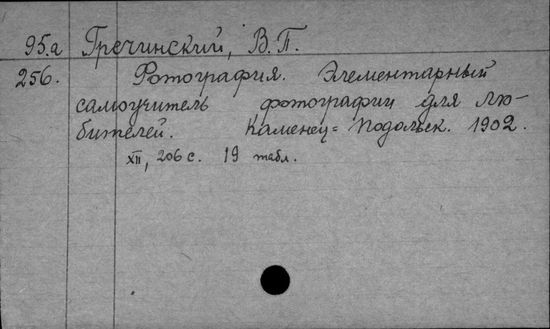 95.а Гречинский, В.П.
256. Фотография. Элементарный
самоучитель фотографии для лю-
бителей. Каменец-Подольск. 1902.
XII, 206 с. 19 табл.